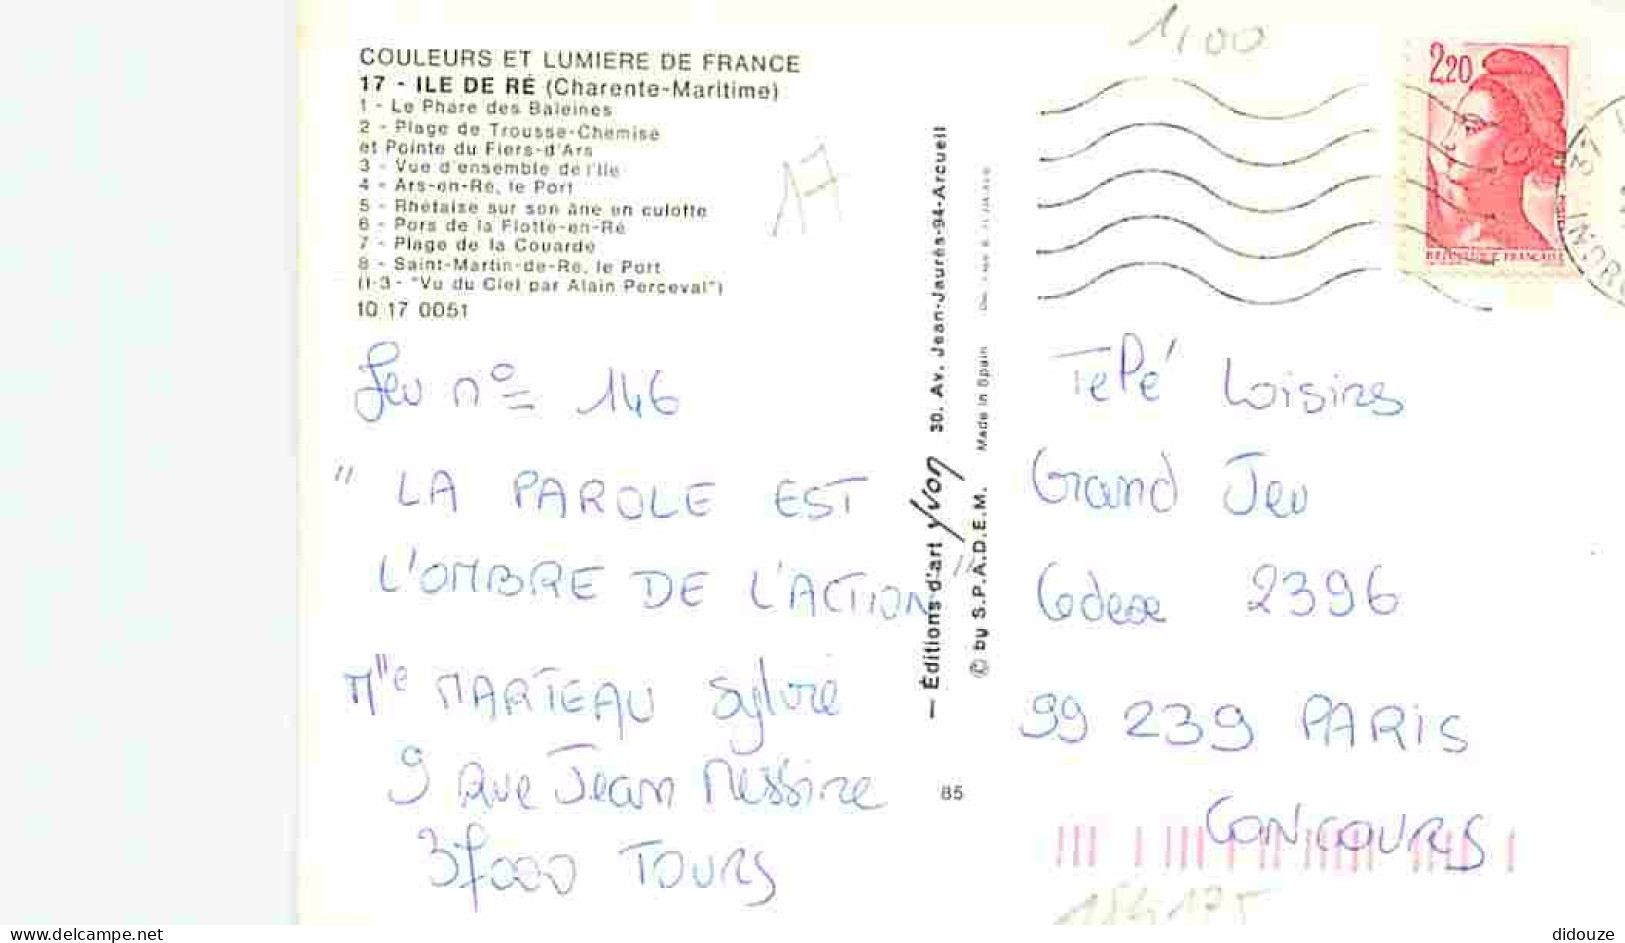 1,00
COULEURS ET LUMIERE DE FRANCE
17 - ILE DE RÉ (Charente-Maritime)
1 - Le Phare des Baleines
2 - Plage de Trousse-Chemise
et Pointe du Fiers-d'Ars
3 - Vue d'ensemble de l'Ile
4 - Ars-en-Ré, le Port
5 - Rhétaise sur son âne en culotte
6 - Pors de la Flotte-en-Ré
7 - Plage de la Couarde
8 - Saint-Martin-de-Ré, le Port
(1-3 - "Vu du Ciel par Alain Perceval")
10 17 0051
17
2,20
REPUBLIQUE FRANCAISE
Jeu n° 146
" LA PAROLE EST
L'OMBRE DE L'ACTION "
Mlle MARTEAU Sylvie
9 Rue Jean Messire
37000 TOURS
— Éditions d'art yvon 30. Av. Jean-Jaurès-94-Arcueil
© by S.P.A.D.E.M. Made in Spain
85
TéPé Loisirs
Grand Jeu
Cedex 2396
99 239 PARIS
CONCOURS
delcampe.net
didouze